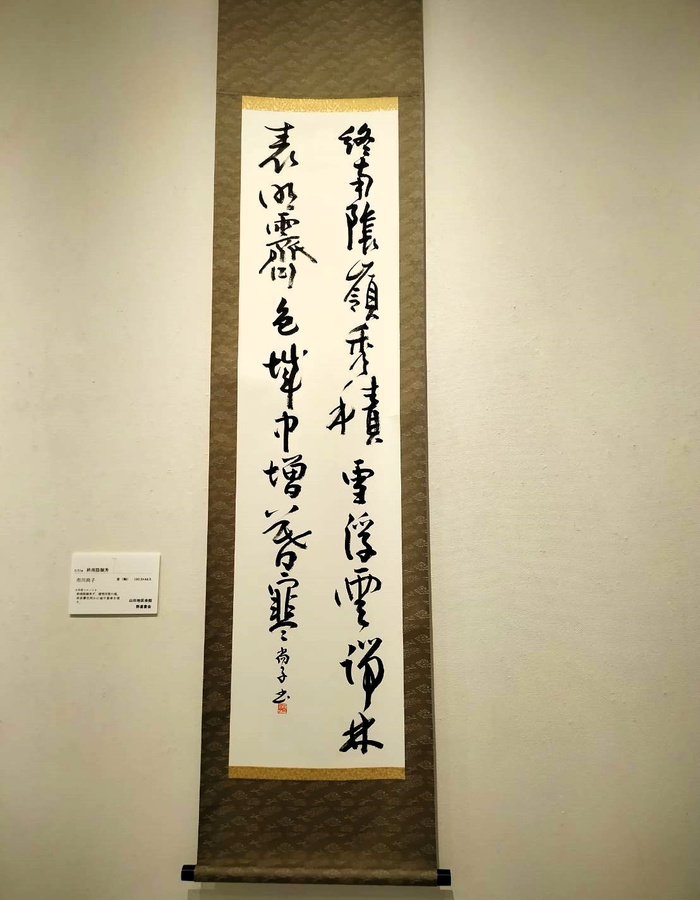 終南陰嶺秀積雪浮雲端林
表明霽色城中増暮寒 尚子書
終南陰嶺秀
尚子